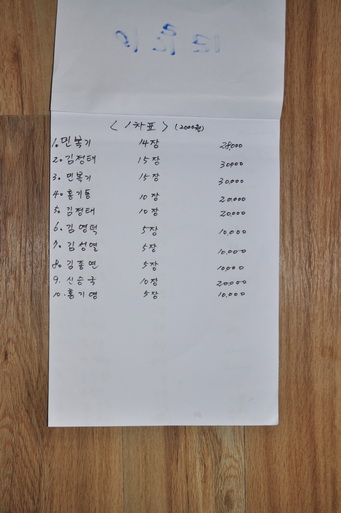 < 1차표 > (2000원)
1. 민복기 14장 28,000
2. 김정태 15장 30,000
3. 민복기 15장 30,000
4. 홍기동 10장 20,000
5. 김정태 10장 20,000
6. 김영덕 5장 10,000
7. 김성열 5장 10,000
8. 김 5장 10,000
9. 신승국 10장 20,000
10. 홍기영 5장 10,000